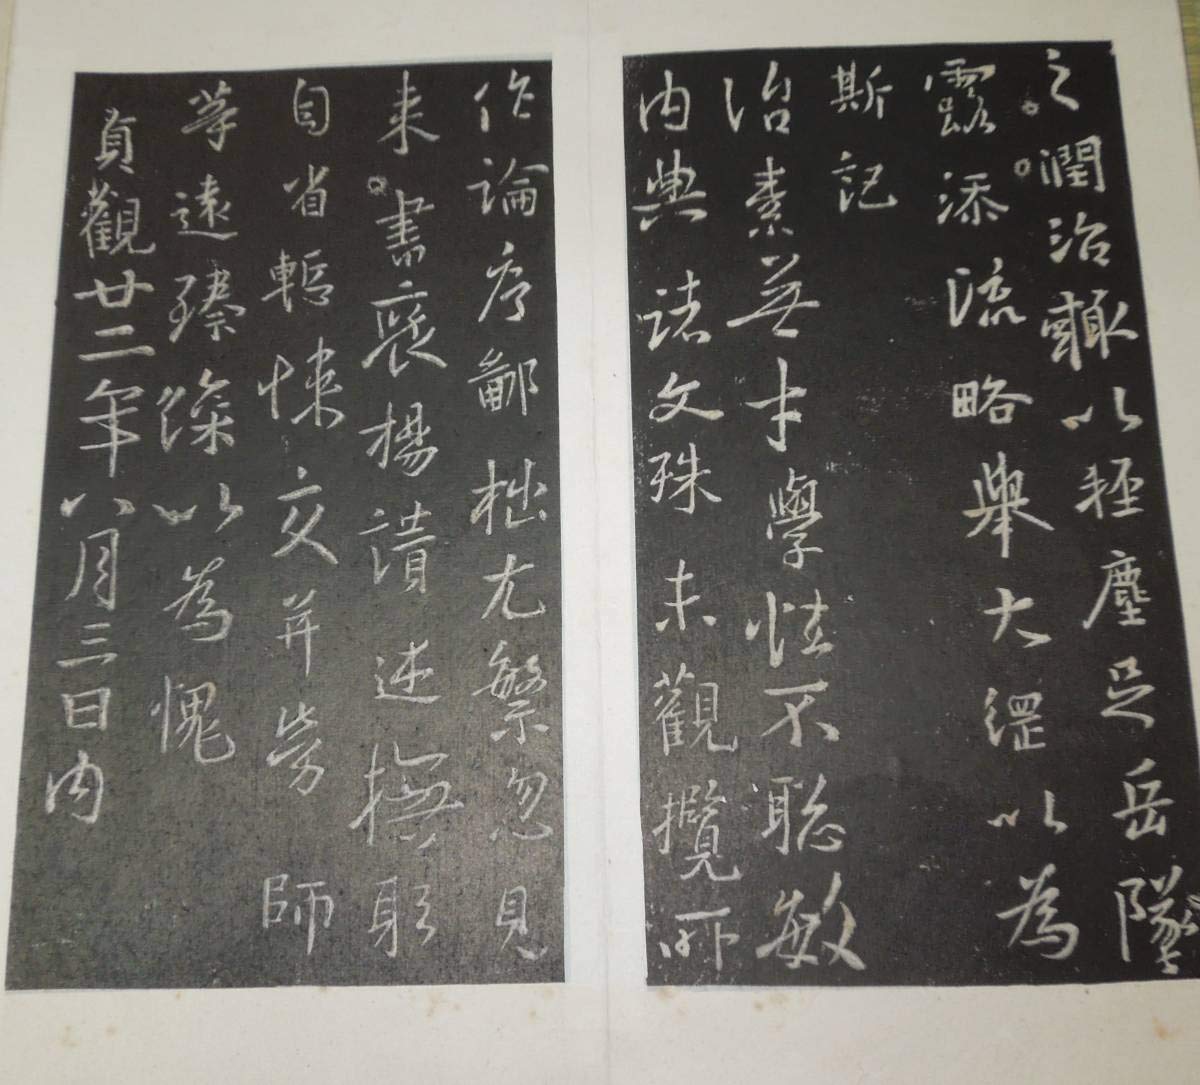 之潤治輒以輕塵足岳墜
露添流略舉大綱以為
斯記
治素無才學性不聰敏
內典諸文殊未觀攬所
作論序鄙拙尤繁忽見
来書褒揚讃述撫躬
自省慙悚交并勞師
等遠臻深以為愧
貞觀廿二年八月三日內